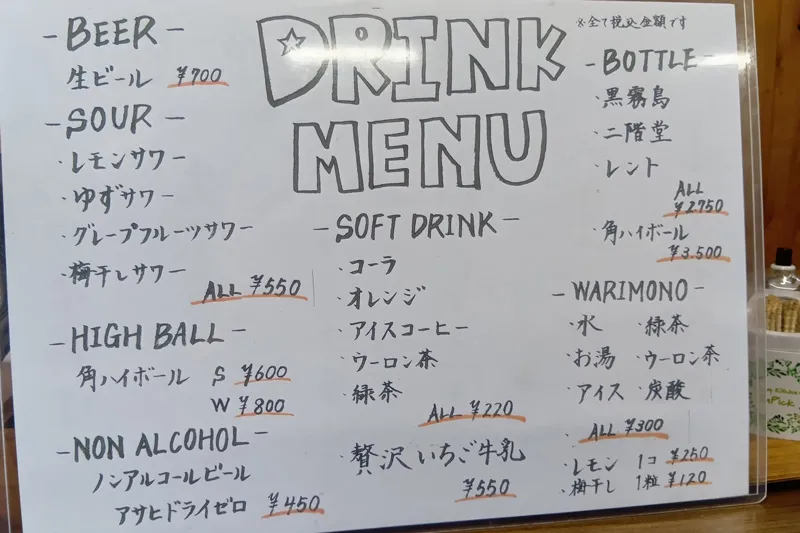 DRINK
MENU
※全て税込金額です
-BEER-
生ビール ¥700
-SOUR-
・レモンサワー
・ゆずサワー
・グレープフルーツサワー
・梅干しサワー
ALL ¥550
-HIGH BALL-
角ハイボール S ¥600
W ¥800
-NON ALCOHOL-
ノンアルコールビール
アサヒドライゼロ ¥450
-SOFT DRINK-
・コーラ
・オレンジ
・アイスコーヒー
・ウーロン茶
・緑茶
ALL ¥220
・贅沢いちご牛乳
¥550
-BOTTLE-
・黒霧島
・二階堂
・レント
ALL
¥2750
・角ハイボール
¥3.500
-WARIMONO-
・水 ・緑茶
・お湯 ・ウーロン茶
・アイス ・炭酸
・ ALL ¥300
・レモン 1コ ¥250
・梅干し 1粒 ¥120
Pick